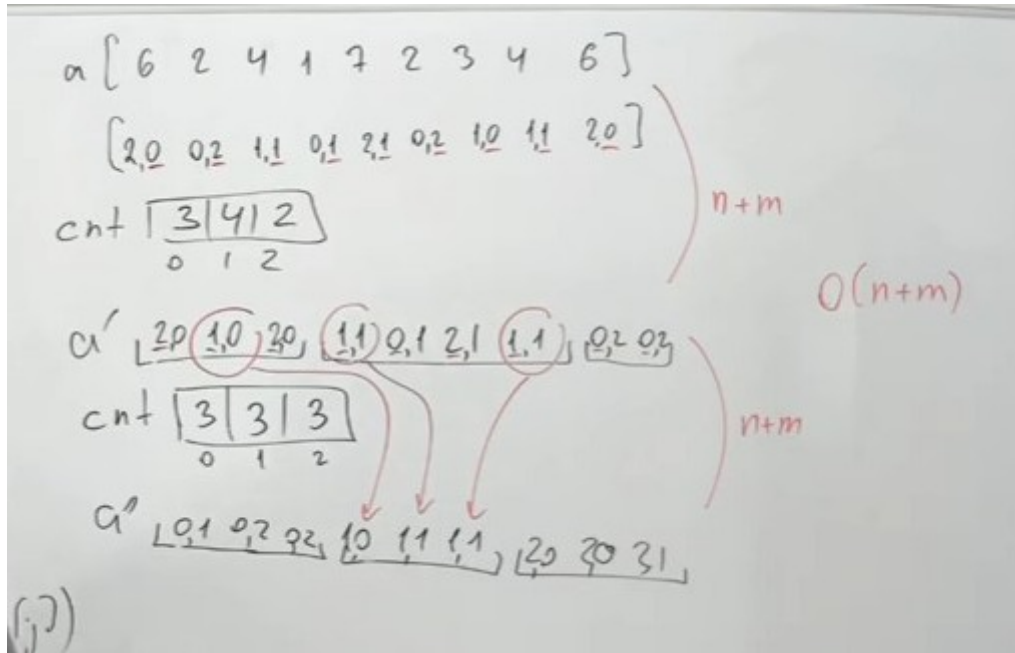 a [ 6 2 4 1 7 2 3 4 6 ]
[ 2,0 0,2 1,1 0,1 2,1 0,2 1,0 1,1 2,0 ]
n+m
cnt | 3 | 4 | 2
0 1 2
O(n+m)
a' 2,0 1,0 2,0 1,1 0,1 2,1 1,1 0,2 0,2
cnt | 3 | 3 | 3
0 1 2
n+m
a" 0,1 0,2 0,2 1,0 1,1 1,1 2,0 2,0 2,1